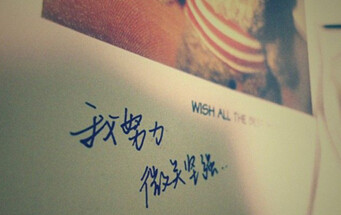 WISH ALL THE
我努力
微笑坚强...